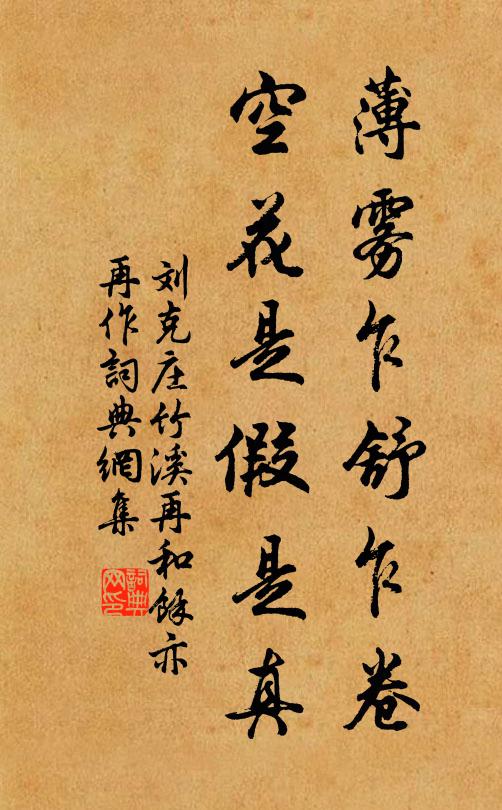 薄雾乍舒乍卷
空花是假是真
刘克庄竹溪再和馀亦
再作詞典網集
詞典网印